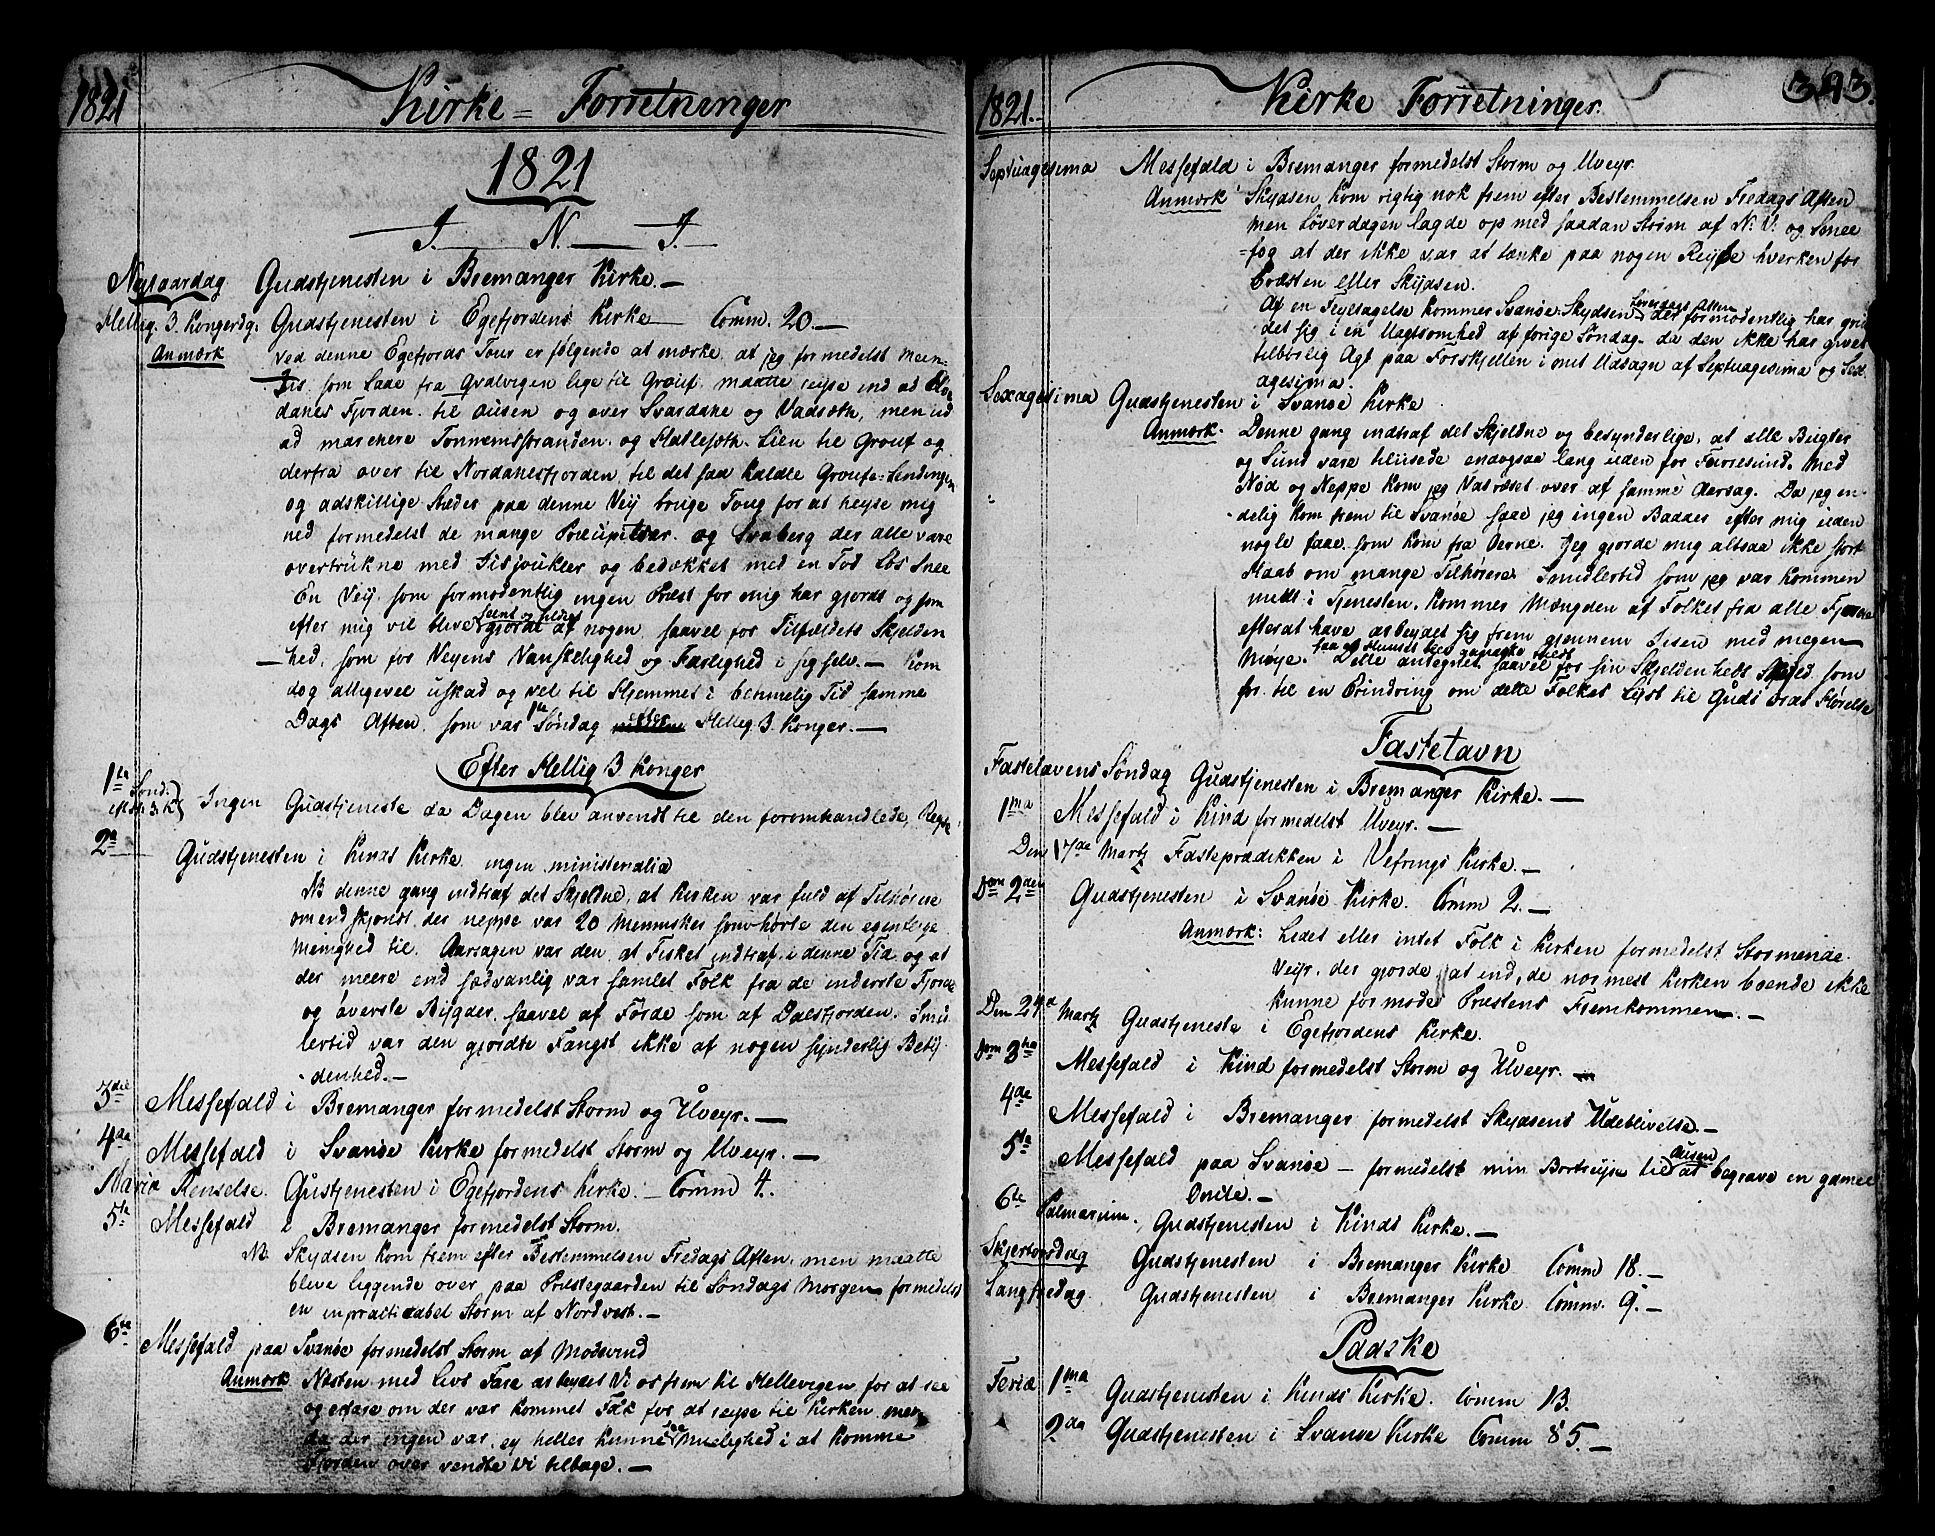 1821 Kirke = Forretninger
1821
J. N. J.
Nytaarsdag Gudstjenesten i Bremanger Kirke. —
Hellig. 3. Kongerdg. Gudstjenesten i Egefjordens Kirke — Comm. 20. —
Anmærk ved denne Egefjords Tour er følgende at mærke, at jeg formedelst Meen-
Jis. som Laae fra Qvalvigen lige til Grouf, maatte reyse ind ad
danes Fjorden til Ausen og over Svardane og Vadsæth, men ud
ad marchere Tonnemsstranden og Hallesæth-Lien til Grouf og
derfra over til Nordanesfjorden til det saa kaldte Groufs-Lendingen
og adskillige Steder paa denne Veij bruge Toug for at heyse mig
ned formedelst de mange og Svaberg der alle vare
overtrukne med Jisjoukler og bedækket med en Fod Løs Snee
En Veij som formodentlig ingen Præst før mig har gjordt og som
efter mig vil blive seent og sielden gjordt af nogen, saavel for Tilfældets Skjelden
hed, som for Veyens Vanskelighed og Farlighed i sig selv. — Kom
dog alligevel uskad og vel til Hjemmet i betimelig Tid samme
Dags Aften som var 1te Søndag efter Hellig 3 Konger. —
Efter Hellig 3 Konger
1te Sønd. efter h. 3. K. Ingen Gudstjeneste da Dagen blev anvendt til den foromhandlede Reyse.
2n Gudstjenesten i Kinds Kirke ingen ministerialia
NB denne gang indtraf det Skjeldne, at Kirken var fuld af Tilhørere
omendskjøndt der neppe var 20 Mennesker som hørte den egentlige
Menighed til. Aarsagen var den at Fisket indtraf i denne Tid og at
der meere end sædvanlig var samlet Folk fra de inderste Fjorde
og øverste Bijgder, saavel af Førde som af Dalsfjorden. Imid
lertid var den gjordte Fangst ikke af nogen synderlig Betij
denhed. —
3die Messefald i Bremanger formedelst Storm og Uveyr. —
4de Messefald i Svanøe Kirke formedelst Storm og Uveyr. —
Mariæ Renselse. Gustjenesten i Egefjordens Kirke. — Comm 4.
5te Messefald i Bremanger formedelst Storm.
NB Skydsen kom frem efter Bestemmelsen Fredags Aften, men maatte
blive liggende over paa Præstegaarden til Søndags Morgen formedelst
en inpracticabel Storm af Nordvest. —
6te Messefald paa Svanøe formedelst Storm af Modvind
Anmærk Næsten med Livs Fare arbeydet Vi os frem til Hellevigen for at see
og erfare om der var kommet Folk for at reyse til Kirken, men
da der ingen var, ey heller kunne see Muelighed i at komme
Fjorden over vendte Vi tilbage. —
1821. Kirke Forretninger. 343.
Septuagesima Messefald i Bremanger formedelst Storm og Uveyr.
Anmærk Skydsen kom rigtig nok frem efter Bestemmelsen Fredags Aften
men Løverdagen lagde op med saadan Storm af N: V: og Snee
=fog at der ikke var at tænke paa nogen Reyse hverken for
Præsten eller Skydsen.
Af en Fejltagelse kommer Svanøe-Skydsen Løverdags Aften det formodentlig har grun
det sig i en Uagtsomhed af forige Søndag da den ikke har givet
tilbørlig Agt paa Forskjellen i mit Udsagn af Septuagesima og Sex
agesima.
Sexagesima Gudstjenesten i Svanøe Kirke
Anmærk. Denne gang indtraf det Skjeldne og besynderlige, at alle Bugter
og Sund vare tiliisede endogsaa lang uden for Furresund. Med
Nød og Neppe kom jeg Vasræset over af samme Aarsag. Da jeg en-
delig kom frem til Svanøe saae jeg ingen Baader efter mig uden
nogle faae som kom fra Øerne. Jeg gjorde mig altsaa ikke stort
Haab om mange Tilhørere. Imidlertid som jeg var kommen
midt i Tjenesten, kommer Mængden af Folket fra alle Fjorde
efterat have arbeydet sig frem gjennem Jisen med megen
Møye. Dette antegnes saavel for sin Skjeldenheds Skyld som
for til en Erindring om dette Folkes Lyst til Guds Ords Hørelse
Fastelavn
Fastelavens Søndag Gudstjenesten i Bremanger Kirke. —
1ma Messefald i Kind formedelst Uveyr. —
Den 17de Martz Fasteprædikken i Vefrings Kirke. —
Dom 2den Gudstjenesten i Svanøe Kirke. Comm 2. —
Anmærk: Lidet eller intet Folk i Kirken formedelst Stormende
Veyr, der gjorde at end, de nærmest Kirken boende ikke
kunne formode Præstens Fremkommen. —
Den 24de Martz Gudstjeneste i Egefjordens Kirke.
Dom 3tia Messefald i Kind formedelst Storm og Uveyr.
4de Messefald i Bremanger formedelst Skydsens Udeblivelse. —
5te Messefald paa Svanøe — formedelst min Bortrejse til Ausen at begrave en gamel
Qvinde. —
6te Palmarum. Gudstjenesten i Kinds Kirke. —
Skjertorsdag Gudstjenesten i Bremanger Kirke Comm 18. —
Langfredag. Gudstjenesten i Bremanger Kirke Comm. 9. —
Paaske
Feria 1ma Gudstjenesten i Kinds Kirke. Comm 13.
2da Gudstjenesten i Svanøe Kirke Comm 85. —